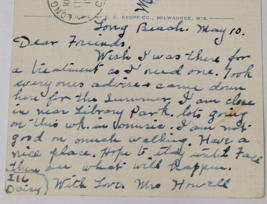 LONG
E. C. KROPP CO., MILWAUKEE, WIS.
Long Beach. May 10.
Dear Friends.
Wish I was there for
a treatment as I need one. Took
every ones advise & came down
here for the Summer. I am close
in near Library Park. lots going
on this wk. in music. I am not
good on much walking. Have a
nice place. Hope to stay until Fall
then see what will happen.
216 Daisy
With Love. Mrs Howell